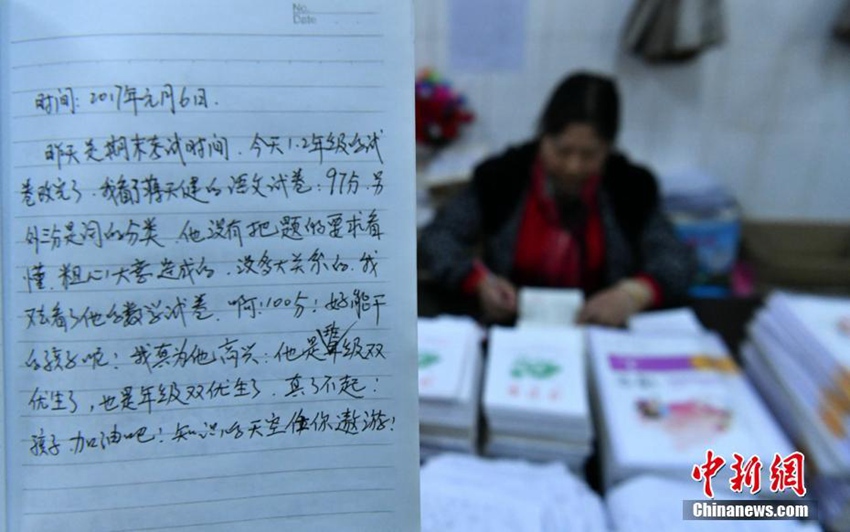 No.
Date
时间：2017年元月6日.
昨天是期末考试时间，今天1.2年级的试
卷改完了，我看了蒋天健的语文试卷：97分，另
外3分是词的分类，他没有把题的要求看
懂，粗心大意造成的，没多大关系的，我
又看了他的数学试卷，啊！100分！好能干
的孩子呢！我真为他高兴：他是班级双
优生了，也是年级双优生了，真了不起！
孩子，加油吧！知识的天空任你遨游！
中新网
Chinanews.com